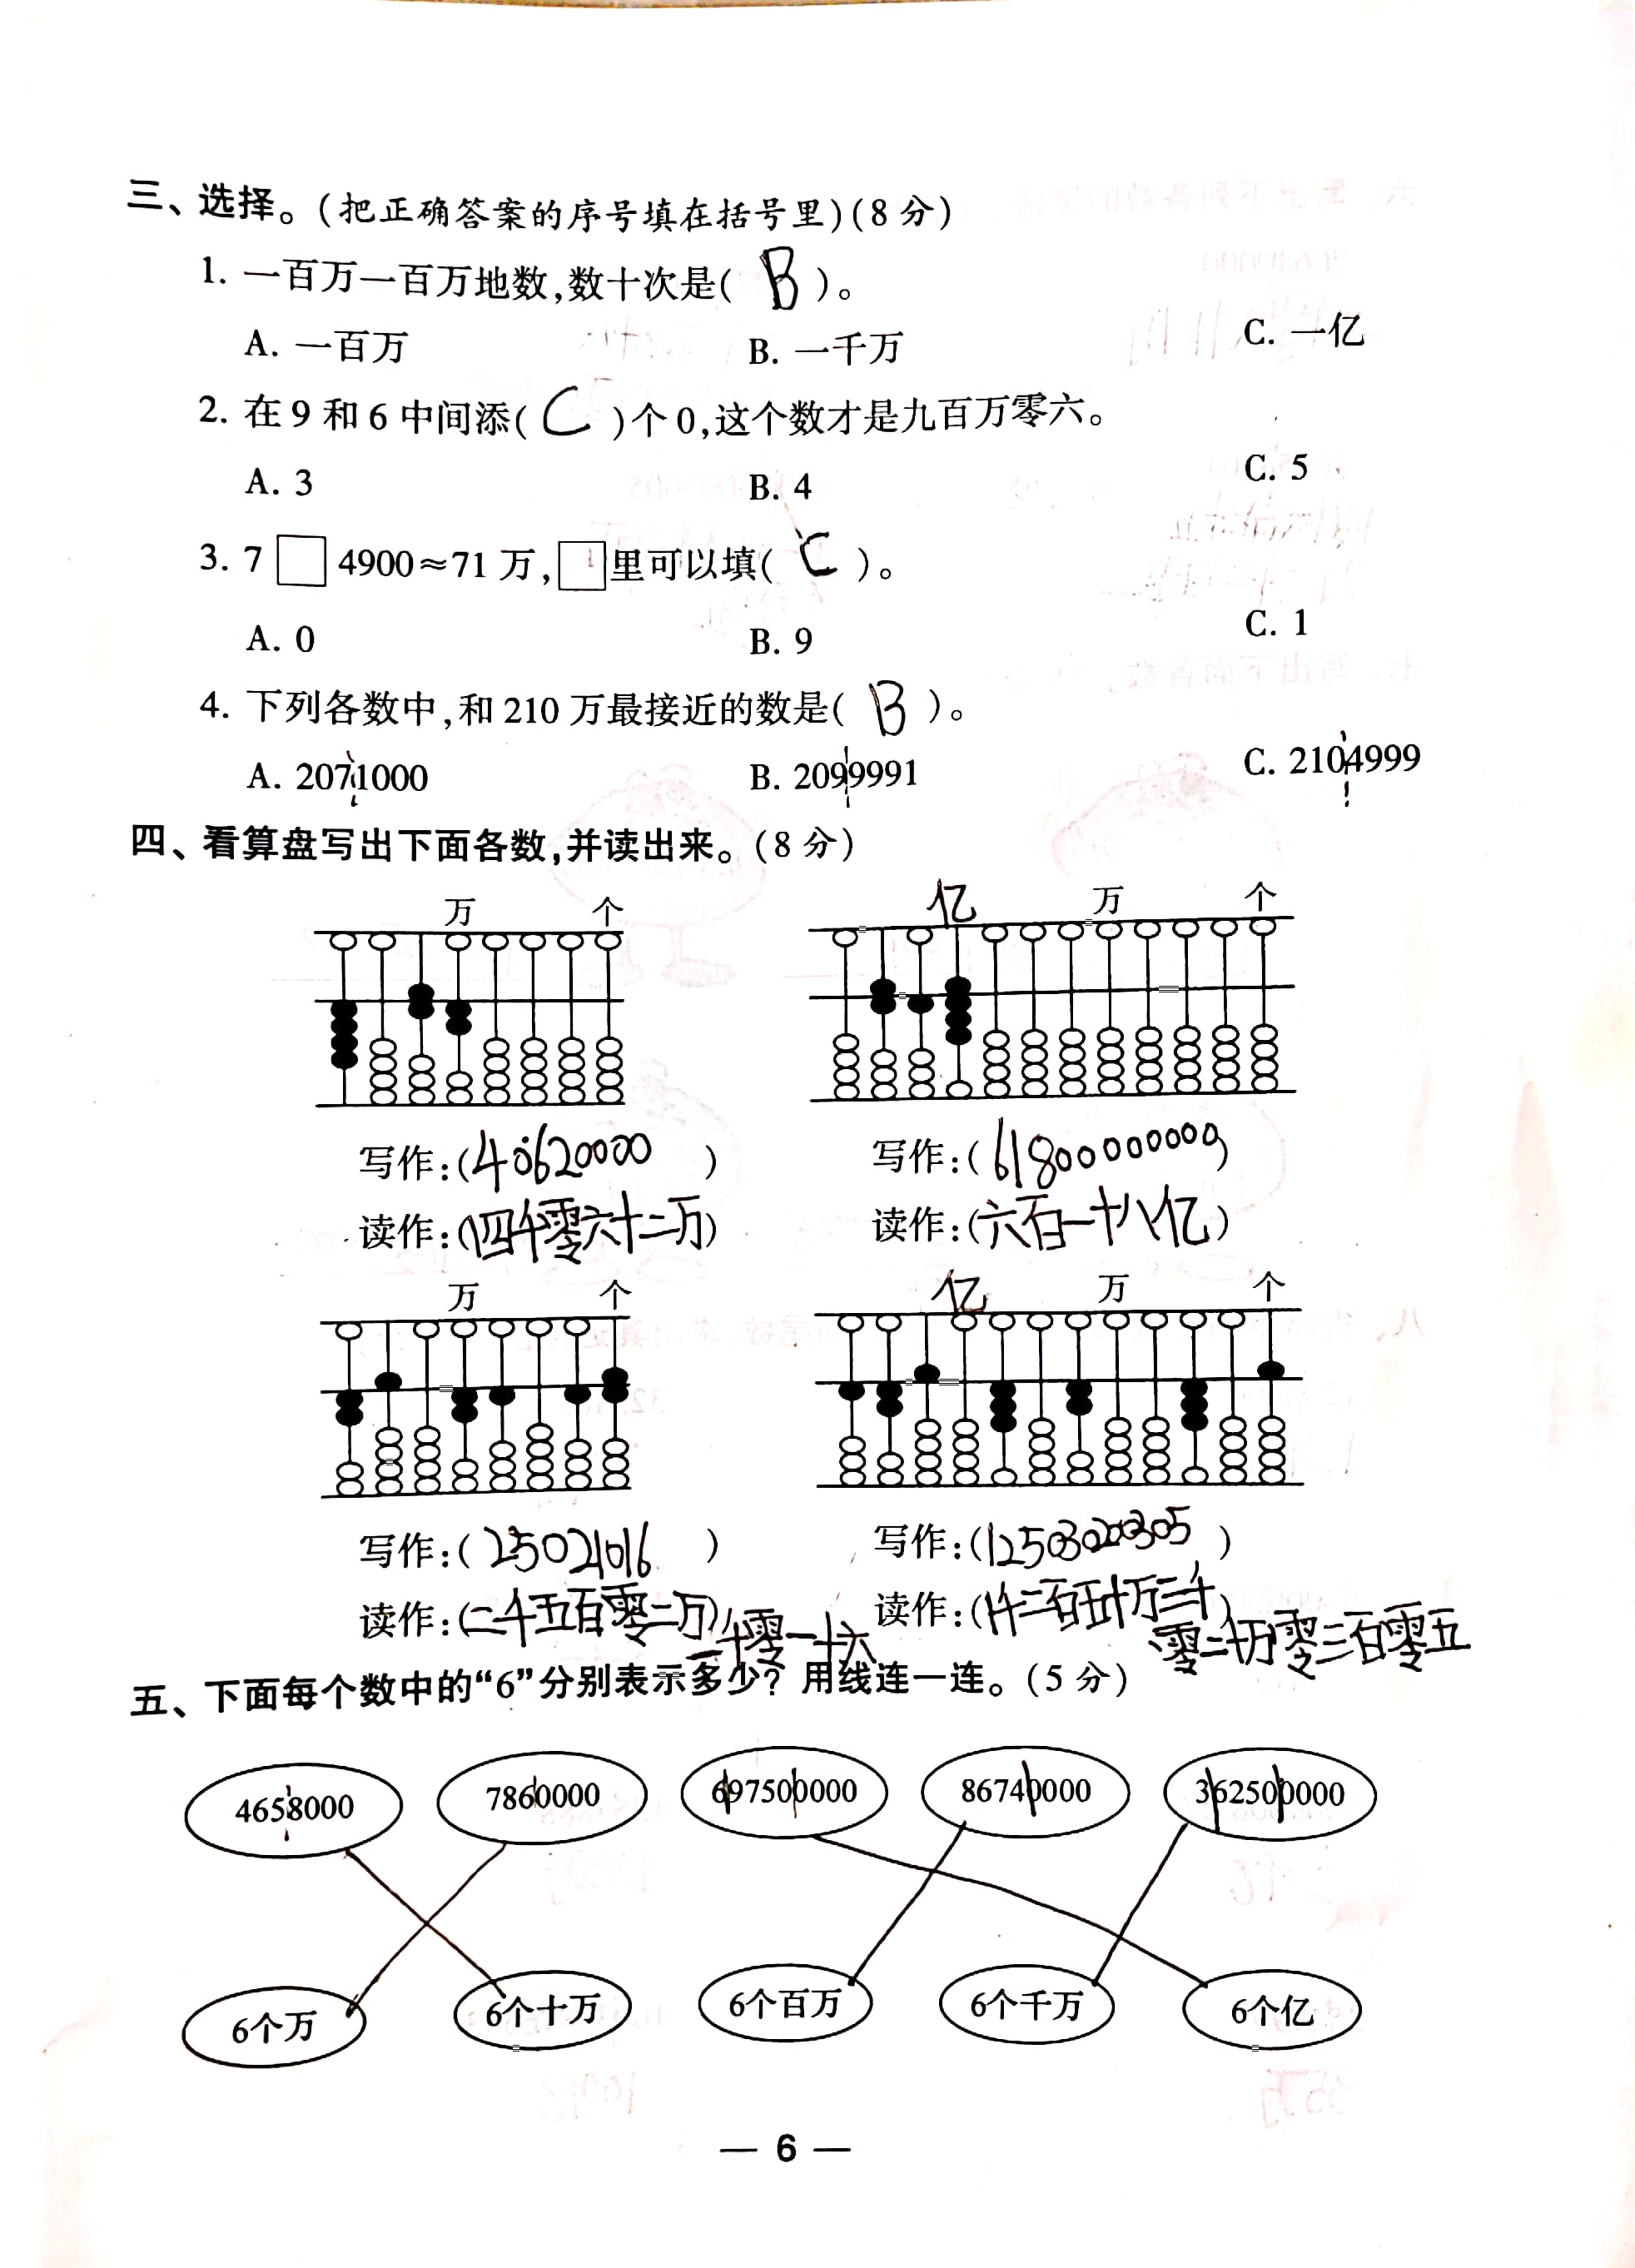 三、选择。(把正确答案的序号填在括号里)(8分)
1. 一百万一百万地数,数十次是( B )。
A. 一百万 B. 一千万 C. 一亿
2. 在9和6中间添( C )个0,这个数才是九百万零六。
A. 3 B. 4 C. 5
3. 7□4900≈71万,□里可以填( C )。
A. 0 B. 9 C. 1
4. 下列各数中,和210万最接近的数是( B )。
A. 2071000 B. 2099991 C. 2104999
四、看算盘写出下面各数,并读出来。(8分)
万 个 亿 万 个
写作:(40620000) 写作:(61800000000)
读作:(四千零六十二万) 读作:(六百一十八亿)
万 个 亿 万 个
写作:(25021016) 写作:(125030200305)
读作:(二千五百零二万
一千零一十六
读作:(
零二十万零三百零五
五、下面每个数中的“6”分别表示多少? 用线连一连。(5分)
4658000 7860000 697500000 86740000 362500000
6个万 6个十万 6个百万 6个千万 6个亿
— 6 —